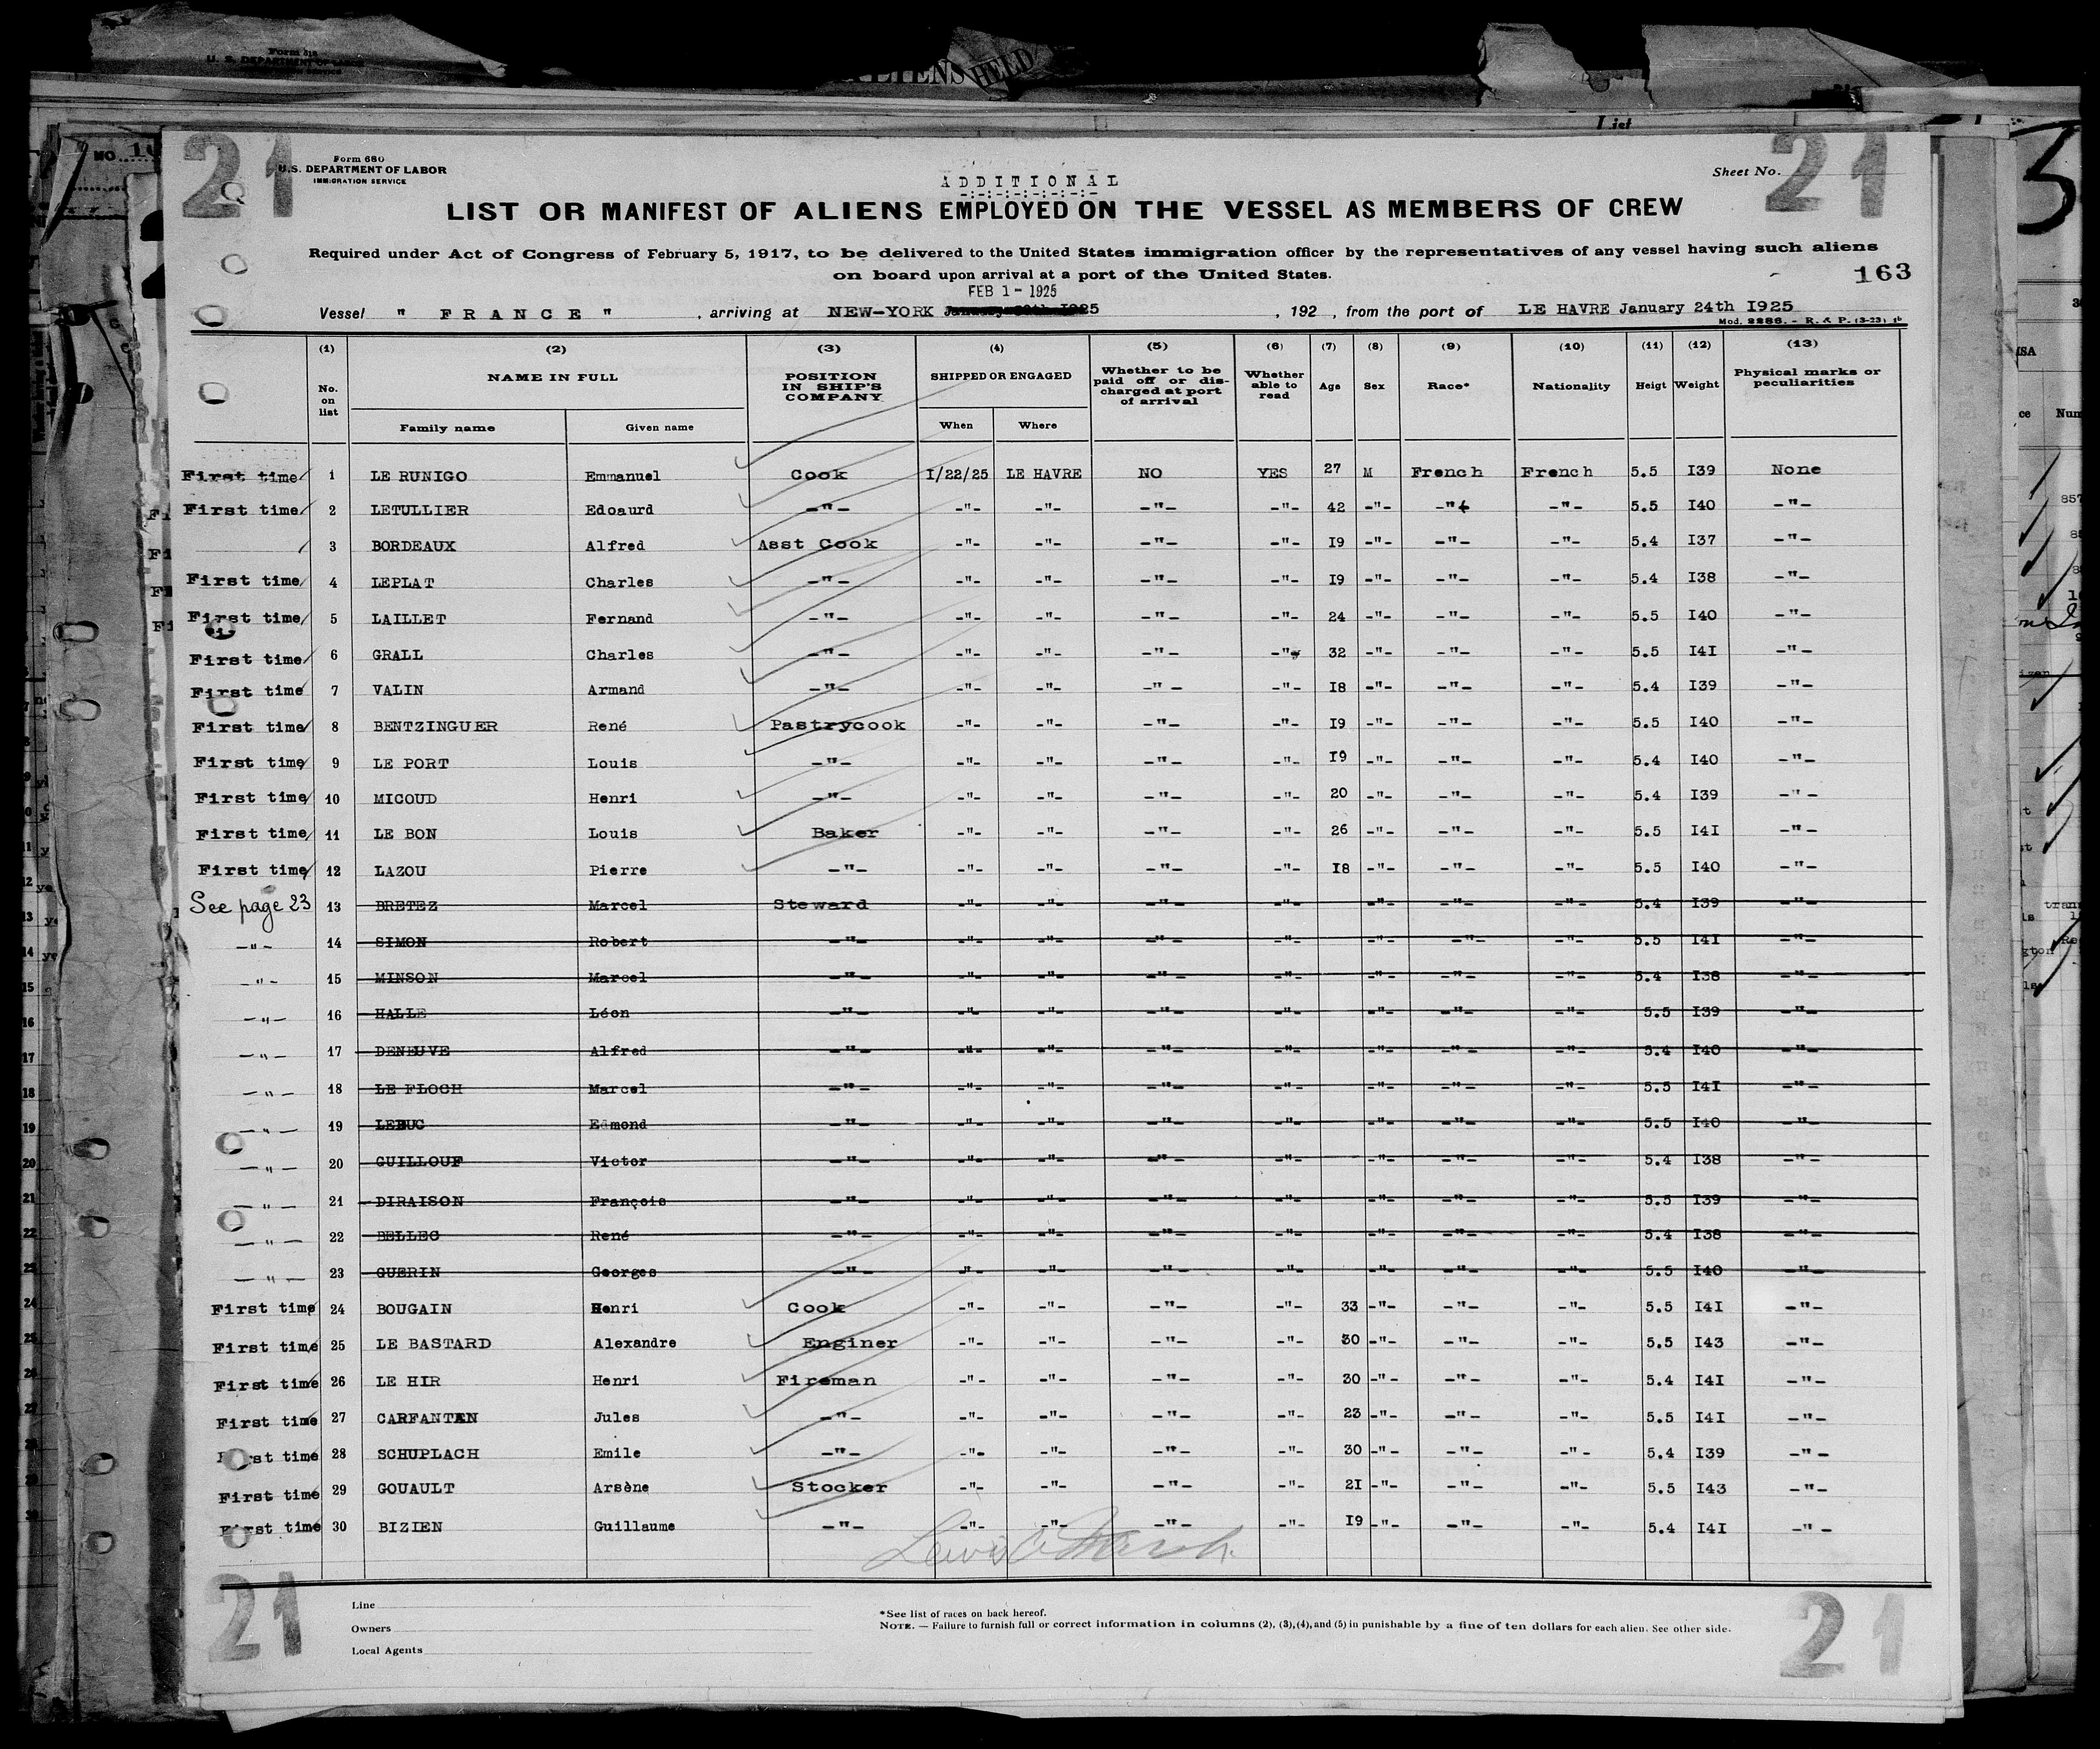 Form 618
U. S. DEPARTMENT OF LABOR
ALIENS HELD
List
21 21
NO. 
Form 680
U.S. DEPARTMENT OF LABOR
IMMIGRATION SERVICE
Sheet No.
ADDITIONAL
-:-:-:-:-:-:-:-
LIST OR MANIFEST OF ALIENS EMPLOYED ON THE VESSEL AS MEMBERS OF CREW
Required under Act of Congress of February 5, 1917, to be delivered to the United States immigration officer by the representatives of any vessel having such aliens
on board upon arrival at a port of the United States.
163
FEB 1 - 1925
Vessel " F R A N C E " , arriving at NEW-YORK January 30th I925 , 192 , from the port of LE HAVRE January 24th I925
Mod. 2286. - R. & P. (3-23) 1b
(1) (2) (3) (4) (5) (6) (7) (8) (9) (10) (11) (12) (13)
No. on list NAME IN FULL POSITION IN SHIP'S COMPANY SHIPPED OR ENGAGED Whether to be paid off or discharged at port of arrival Whether able to read Age Sex Race* Nationality Heigt Weight Physical marks or peculiarities
Family name Given name When Where
First time 1 LE RUNIGO Emmanuel Cook I/22/25 LE HAVRE NO YES 27 M French French 5.5 I39 None
First time 2 LETULLIER Edoaurd -"- -"- -"- -"- -"- 42 -"- -"- -"- 5.5 I40 -"-
3 BORDEAUX Alfred Asst Cook -"- -"- -"- -"- I9 -"- -"- -"- 5.4 I37 -"-
First time 4 LEPLAT Charles -"- -"- -"- -"- -"- I9 -"- -"- -"- 5.4 I38 -"-
First time 5 LAILLET Fernand -"- -"- -"- -"- -"- 24 -"- -"- -"- 5.5 I40 -"-
First time 6 GRALL Charles -"- -"- -"- -"- -"- 32 -"- -"- -"- 5.5 I4I -"-
First time 7 VALIN Armand -"- -"- -"- -"- -"- I8 -"- -"- -"- 5.4 I39 -"-
First time 8 BENTZINGUER René Pastrycook -"- -"- -"- -"- I9 -"- -"- -"- 5.5 I40 -"-
First time 9 LE PORT Louis -"- -"- -"- -"- -"- I9 -"- -"- -"- 5.4 I40 -"-
First time 10 MICOUD Henri -"- -"- -"- -"- -"- 20 -"- -"- -"- 5.4 I39 -"-
First time 11 LE BON Louis Baker -"- -"- -"- -"- 26 -"- -"- -"- 5.5 I4I -"-
First time 12 LAZOU Pierre -"- -"- -"- -"- -"- I8 -"- -"- -"- 5.5 I40 -"-
See page 23 13 BRETEZ Marcel Steward -"- -"- -"- -"- -"- -"- -"- 5.4 I39 -"-
-"- 14 SIMON Robert -"- -"- -"- -"- -"- -"- -"- -"- 5.5 I4I -"-
-"- 15 MINSON Marcel -"- -"- -"- -"- -"- -"- -"- -"- 5.4 I38 -"-
-"- 16 HALLE Léon -"- -"- -"- -"- -"- -"- -"- -"- 5.5 I39 -"-
-"- 17 DENEUVE Alfred -"- -"- -"- -"- -"- -"- -"- -"- 5.4 I40 -"-
-"- 18 LE FLOCH Marcel -"- -"- -"- -"- -"- -"- -"- -"- 5.5 I4I -"-
-"- 19 LEDUC Edmond -"- -"- -"- -"- -"- -"- -"- -"- 5.5 I40 -"-
-"- 20 GUILLOUF Victor -"- -"- -"- -"- -"- -"- -"- -"- 5.4 I38 -"-
-"- 21 DIRAISON François -"- -"- -"- -"- -"- -"- -"- -"- 5.5 I39 -"-
-"- 22 BELLEC René -"- -"- -"- -"- -"- -"- -"- -"- 5.4 I38 -"-
-"- 23 GUERIN Georges -"- -"- -"- -"- -"- -"- -"- -"- 5.5 I40 -"-
First time 24 BOUGAIN Henri Cook -"- -"- -"- -"- 33 -"- -"- -"- 5.5 I4I -"-
First time 25 LE BASTARD Alexandre Enginer -"- -"- -"- -"- 30 -"- -"- -"- 5.5 I43 -"-
First time 26 LE HIR Henri Fireman -"- -"- -"- -"- 30 -"- -"- -"- 5.4 I4I -"-
First time 27 CARFANTAN Jules -"- -"- -"- -"- -"- 23 -"- -"- -"- 5.5 I4I -"-
First time 28 SCHUPLACH Emile -"- -"- -"- -"- -"- 30 -"- -"- -"- 5.4 I39 -"-
First time 29 GOUAULT Arsène Stocker -"- -"- -"- -"- 2I -"- -"- -"- 5.5 I43 -"-
First time 30 BIZIEN Guillaume -"- -"- -"- -"- -"- I9 -"- -"- -"- 5.4 I4I -"-
21 21
Line
Owners
Local Agents
*See list of races on back hereof.
NOTE. — Failure to furnish full or correct information in columns (2), (3), (4), and (5) in punishable by a fine of ten dollars for each alien. See other side.